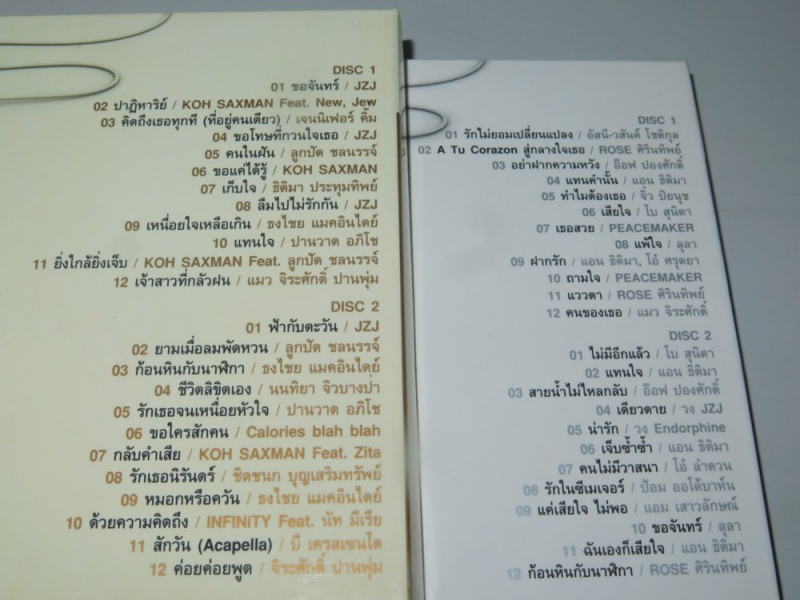 DISC 1
01 ขอจันทร์ / JZJ
02 ปาฏิหาริย์ / KOH SAXMAN Feat. New, Jew
03 คิดถึงเธอทุกที (ที่อยู่คนเดียว) / เจนนิเฟอร์ คิ้ม
04 ขอโทษที่กวนใจเธอ / JZJ
05 คนในฝัน / ลูกปัด ชลนรรจ์
06 ขอแค่ได้รู้ / KOH SAXMAN
07 เก็บใจ / ธิติมา ประทุมทิพย์
08 ลืมไปไม่รักกัน / JZJ
09 เหนื่อยใจเหลือเกิน / ธงไชย แมคอินไตย์
10 แทนใจ / ปานวาด อภิโช
11 ยิ่งใกล้ยิ่งเจ็บ / KOH SAXMAN Feat. ลูกปัด ชลนรรจ์
12 เจ้าสาวที่กลัวฝน / แมว จิระศักดิ์ ปานพุ่ม
DISC 2
01 ฟ้ากับตะวัน / JZJ
02 ยามเมื่อลมพัดหวน / ลูกปัด ชลนรรจ์
03 ก้อนหินกับนาฬิกา / ธงไชย แมคอินไตย์
04 ชีวิตลิขิตเอง / นนทิยา จิวบางป่า
05 รักเธอจนเหนื่อยหัวใจ / ปานวาด อภิโช
06 ขอใครสักคน / Calories blah blah
07 กลับคำเสีย / KOH SAXMAN Feat. Zita
08 รักเธอนิรันดร์ / ชิดชนก บุญเสริมทรัพย์
09 หมอกหรือควัน / ธงไชย แมคอินไตย์
10 ด้วยความคิดถึง / INFINITY Feat. นัท มีเรีย
11 สักวัน (Acapella) / บี เครสเซนโด
12 ค่อยค่อยพูด / จิระศักดิ์ ปานพุ่ม
DISC 1
01 รักไม่ยอมเปลี่ยนแปลง / อัสนี-วสันต์ โชติกุล
02 A Tu Corazon สู่กลางใจเธอ / ROSE ศิรินทิพย์
03 อย่าฝากความหวัง / อ๊อฟ ปองศักดิ์
04 แทนคำนั้น / แอน ธิติมา
05 ทำไมต้องเธอ / จิ๋ว ปิยนุช
06 เสียใจ / โบ สุนิตา
07 เธอสวย / PEACEMAKER
08 แพ้ใจ / ลุลา
09 ฝากรัก / แอน ธิติมา, โอ๋ ศรุตยา
10 ถามใจ / PEACEMAKER
11 แววตา / ROSE ศิรินทิพย์
12 คนของเธอ / แมว จิระศักดิ์
DISC 2
01 ไม่มีอีกแล้ว / โบ สุนิตา
02 แทนใจ / แอน ธิติมา
03 สายน้ำไม่ไหลกลับ / อ๊อฟ ปองศักดิ์
04 เดียวดาย / วง JZJ
05 น่ารัก / วง Endorphine
06 เจ็บซ้ำซ้ำ / แอน ธิติมา
07 คนไม่มีวาสนา / โอ๋ ลำดวน
08 รักในซีเมเจอร์ / ป้อม ออโต้บาห์น
09 แค่เสียใจ ไม่พอ / แอม เสาวลักษณ์
10 ขอจันทร์ / ลุลา
11 ฉันเองก็เสียใจ / แอน ธิติมา
12 ก้อนหินกับนาฬิกา / ROSE ศิรินทิพย์